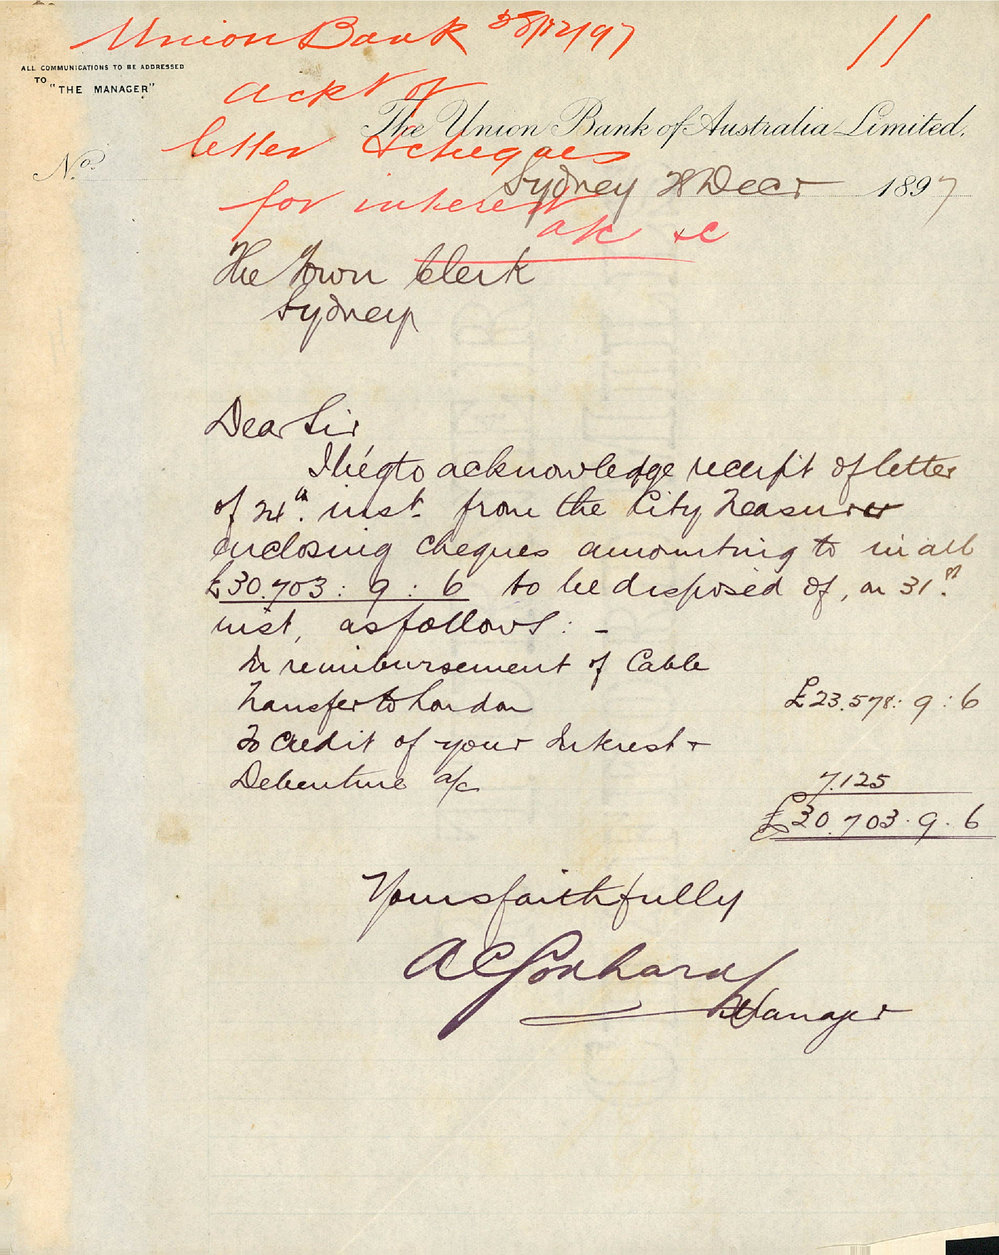 Union Bank 28/12/97
11
ALL COMMUNICATIONS TO BE ADDRESSED
TO "THE MANAGER"
ackt of
The Union Bank of Australia Limited.
letter & cheques
No.
Sydney 28 Decr 1897
for interest
a/c &c
The Town Clerk
Sydney
Dear Sir
I beg to acknowledge receipt of letter
of 24th. inst. from the City Treasurer
enclosing cheques amounting to in all
£30.703 : 9 : 6 to be disposed of, on 31st.
inst, as follows : -
In reimbursement of Cable
Transfer to London £23.578 : 9 : 6
To Credit of your Interest &
Debenture a/c 7.125
£30.703 . 9 . 6
Yours faithfully
A C Godhard
Manager